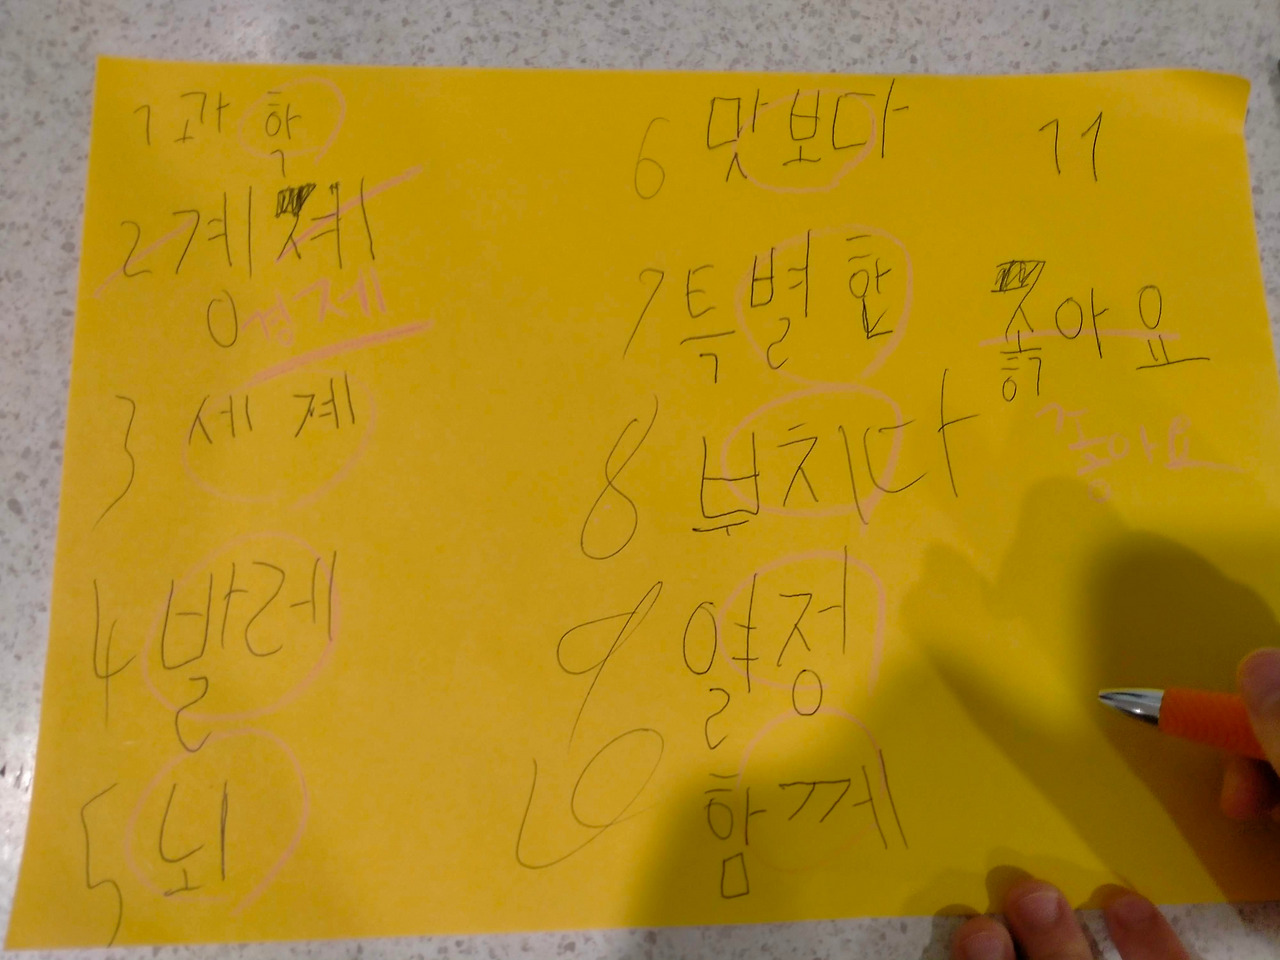 1 과학
2 계졔
0 경제
3 세계
4 발레
5 뇌
6 맛보다
7 특별한
8 부치다
9 열정
10 함께
11
아요
좋아요